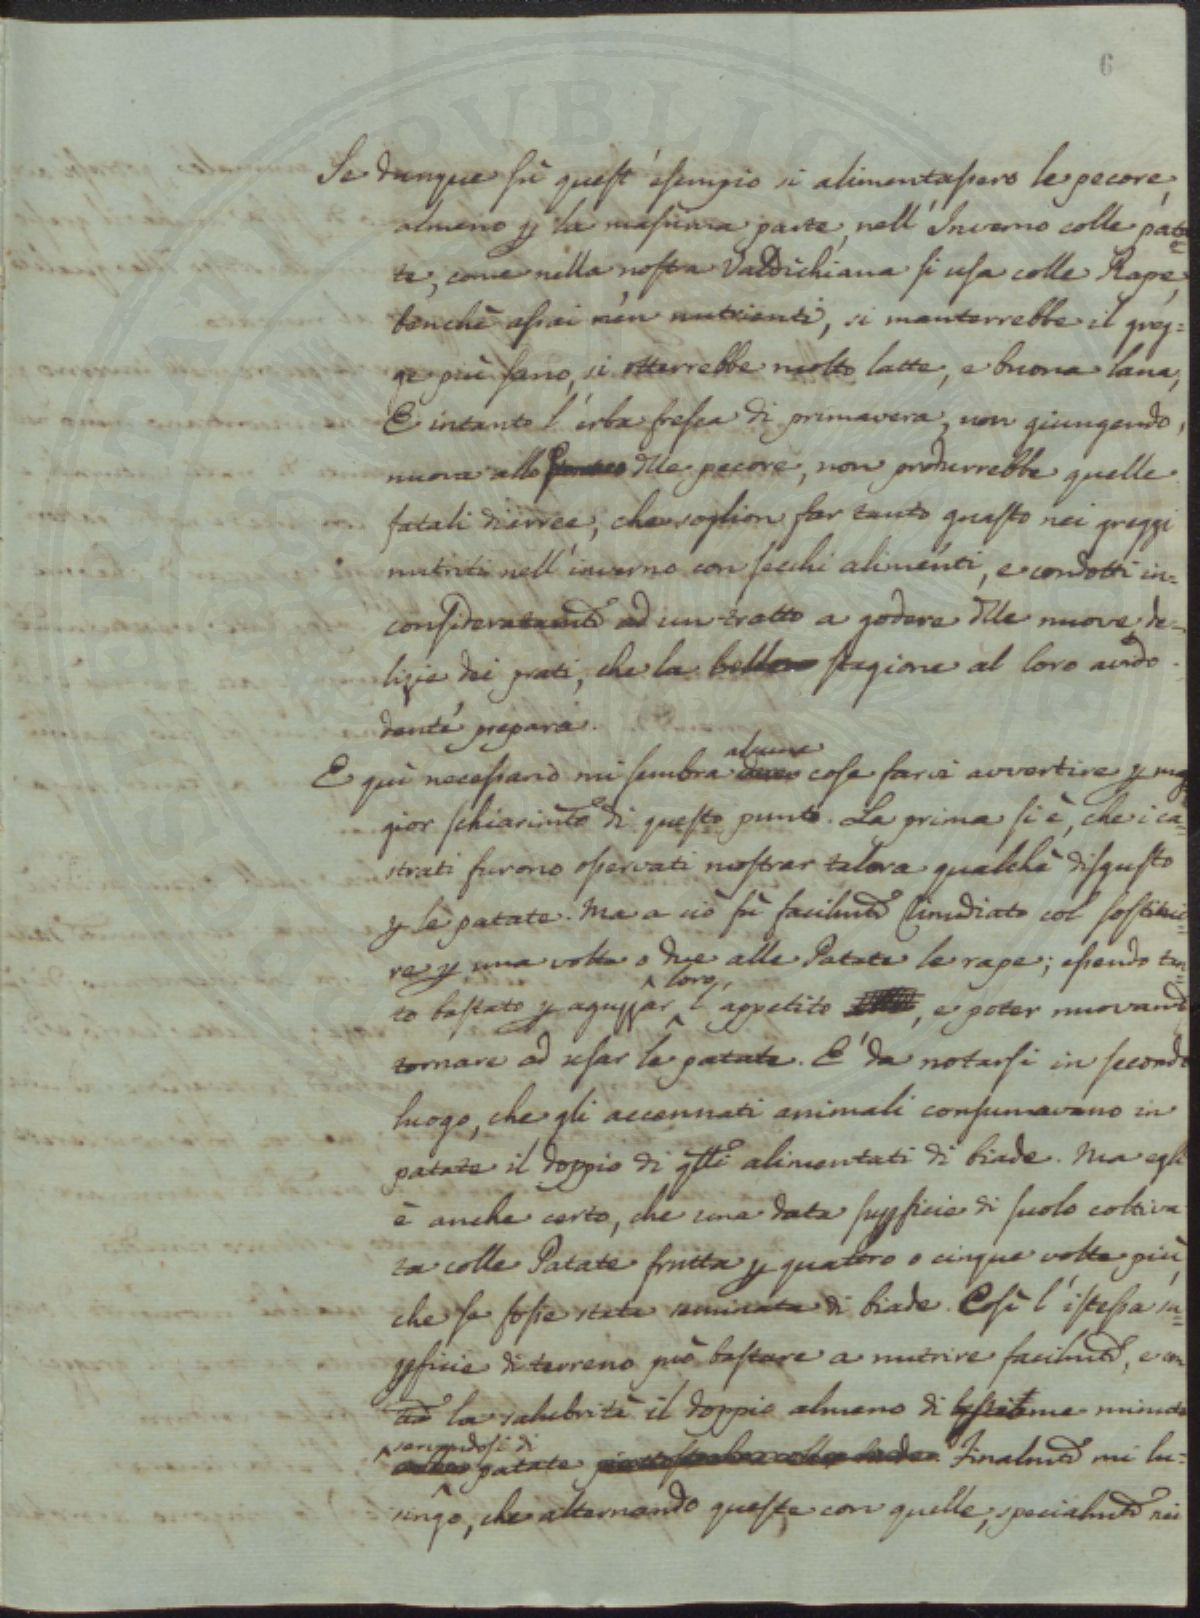 6
Se dunque sù quest'esempio si alimentassero le pecore,
almeno p la massima parte, nell'Inverno colle pata
te, come nella nostra Valdichiana si usa colle Rape,
benchè assai men nutrienti, si manterrebbe il greg=
ge più sano, si otterrebbe molto latte, e buona lana,
E intanto l'erba fresca di primavera, non giungendo,
nuova alle dlle pecore, non produrrebbe quelle
fatali diarree, che soglion far tanto guasto nei greggi
nutriti nell'inverno con secchi alimenti, e condotti in=
consideratamte ad un tratto a godere dlle nuove de=
lizie dei prati, che la stagione al loro avido
dente prepara.
E quì necessario mi sembra alcune cose farvi avvertire p mag
gior schiarimto di questo punto. La prima si è, che i ca=
strati furono osservati mostrar talora qualche disgusto
p le patate. Ma a ciò fù facilmte rimediato col sostitui=
re p una volta o due alle Patate le rape; essendo tan=
to bastato p aguzzar loro l'appetito, e poter nuovamte
tornare ad usar le patate. E' da notarsi in secondo
luogo, che gli accennati animali consumavano in
patate il doppio di qlli alimentati di biade. Ma egli
è anche certo, che una data suppficie di suolo coltiva
ta colle Patate frutta p quattro o cinque volte più,
che se fosse stata seminata di biade. Così l'istessa su=
pficie di terreno può bastare a nutrire facilmte, e con
tta la salubrità il doppio almeno di bestiame minuto
servendosi di
patate Finalmte mi lu=
singo, che alternando queste con quelle, specialmte nei